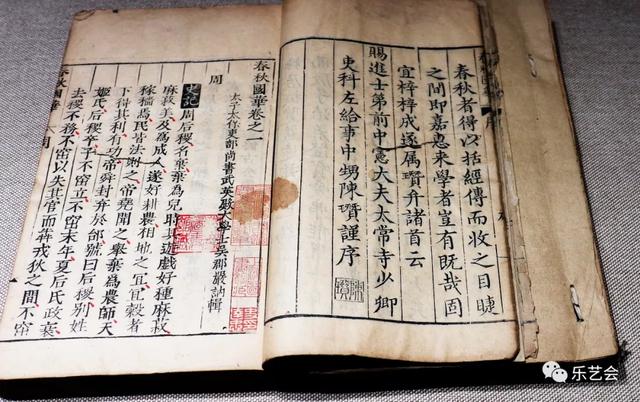 春秋者得以括經傳而收之目睫
之間即嘉惠來學者豈有既哉因
宜梓梓成遂屬瓚弁諸首云
賜進士第前中憲大夫太常寺少卿
吏科左給事中甥陳瓚謹序
春秋國華卷之一
太子太保吏部尚書武英殿大學士吳郡嚴訥輯
周
史記 周后稷名棄棄為兒時其遊戲好種麻菽
麻菽美及為成人遂好耕農相地之宜宜穀者
稼穡焉民皆法則之帝堯聞之舉棄為農師天
下得其利有功帝舜封棄於邰號曰后稷別姓
姬氏后稷卒子不窋立不窋末年夏后氏政衰
去稷不務不窋以失其官而奔戎狄之間不窋
乐艺会